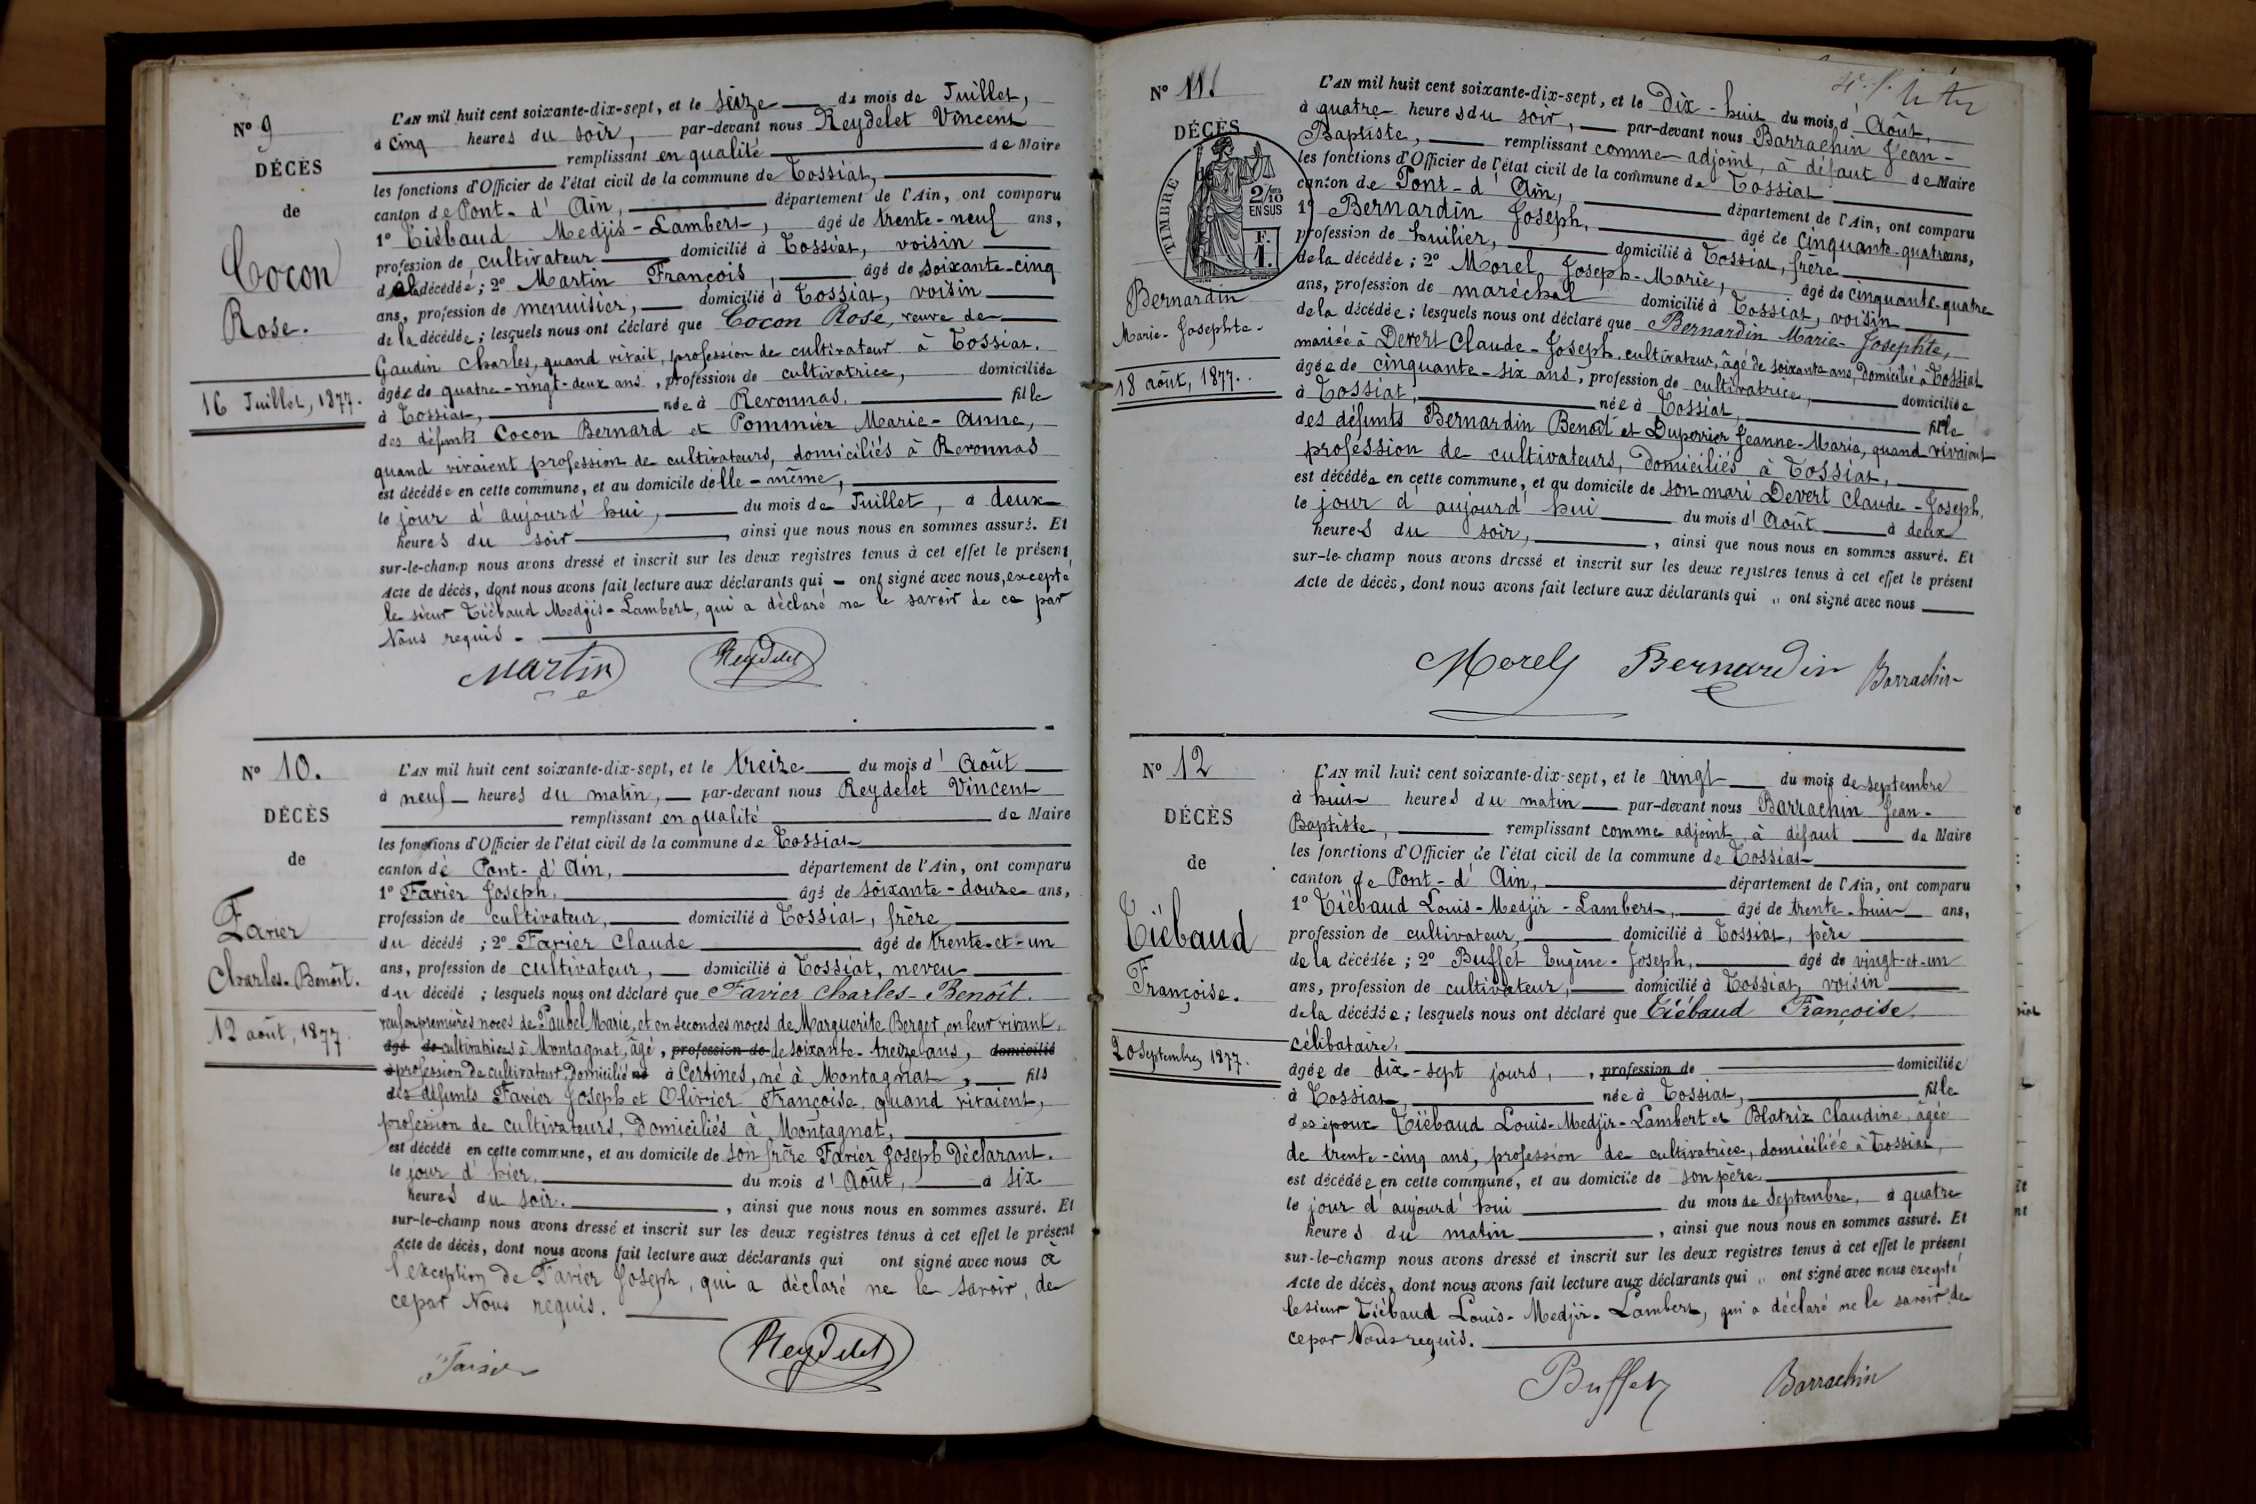 N° 9
DÉCÈS
de
Cocon
Rose.
16 Juillet, 1877.
L'AN mil huit cent soixante-dix-sept, et le seize du mois de Juillet,
à cinq heures du soir, par-devant nous Reydelet Vincent
remplissant en qualité de Maire
les fonctions d'Officier de l'état civil de la commune de Tossiat,
canton de Pont-d'Ain, département de l'Ain, ont comparu
1° Tiébaud Medjis-Lambert, âgé de trente-neuf ans,
profession de cultivateur domicilié à Tossiat, voisin
de la décédée; 2° Martin François, âgé de soixante-cinq
ans, profession de menuisier, domicilié à Tossiat, voisin
de la décédée; lesquels nous ont déclaré que Cocon Rose, veuve de
Gaudin Charles, quand vivait, profession de cultivateur à Tossiat.
âgée de quatre-vingt-deux ans, profession de cultivatrice, domiciliée
à Tossiat, née à Revonnas, fille
des défunts Cocon Bernard et Pommier Marie-Anne,
quand vivaient profession de cultivateurs, domiciliés à Revonnas
est décédée en cette commune, et au domicile delle-même,
le jour d'aujourd'hui, du mois de Juillet, à deux
heures du soir, ainsi que nous nous en sommes assuré. Et
sur-le-champ nous avons dressé et inscrit sur les deux registres tenus à cet effet le présent
Acte de décès, dont nous avons fait lecture aux déclarants qui ont signé avec nous, excepté
le sieur Tiébaud Medjis-Lambert, qui a déclaré ne le savoir de ce par
Nous requis.
Martin Reydelet
N° 10.
DÉCÈS
de
Favier
Charles-Benoît.
12 août, 1877.
L'AN mil huit cent soixante-dix-sept, et le treize du mois d'Août
à neuf heures du matin, par-devant nous Reydelet Vincent
remplissant en qualité de Maire
les fonctions d'Officier de l'état civil de la commune de Tossiat
canton de Pont-d'Ain, département de l'Ain, ont comparu
1° Favier Joseph, âgé de soixante-douze ans,
profession de cultivateur, domicilié à Tossiat, frère
du décédé; 2° Favier Claude âgé de trente-et-un
ans, profession de cultivateur, domicilié à Tossiat, neveu
du décédé; lesquels nous ont déclaré que Favier Charles-Benoît.
veuf en premières noces de Paubel Marie, et en secondes noces de Marguerite Berger, en leur vivant,
âgé de cultivatrices à Montagnat, âgé, profession de de soixante-treize ans, domicilié
à profession de cultivateur, domicilié né à Certines, né à Montagnat, fils
des défunts Favier Joseph et Olivier Françoise, quand vivaient,
profession de cultivateurs, domiciliés à Montagnat,
est décédé en cette commune, et au domicile de son frère Favier Joseph déclarant.
le jour d'hier, du mois d'Août, à six
heures du soir. , ainsi que nous nous en sommes assuré. Et
sur-le-champ nous avons dressé et inscrit sur les deux registres tenus à cet effet le présent
Acte de décès, dont nous avons fait lecture aux déclarants qui ont signé avec nous à
l'exception de Favier Joseph, qui a déclaré ne le savoir, de
ce par Nous requis.
Favier Reydelet
N° 11.
DÉCÈS
TIMBRE
2/10
EN SUS
F.
1.
Bernardin
Marie-Josephte.
18 août, 1877.
L'AN mil huit cent soixante-dix-sept, et le dix-huit du mois d'Août,
à quatre heures du soir, par-devant nous Barrachin Jean-
Baptiste, remplissant comme adjoint, à défaut de Maire
les fonctions d'Officier de l'état civil de la commune de Tossiat
canton de Pont-d'Ain, département de l'Ain, ont comparu
1° Bernardin Joseph, âgé de cinquante-quatre ans,
profession de huilier, domicilié à Tossiat, frère
de la décédée; 2° Morel Joseph-Marie, âgé de cinquante-quatre
ans, profession de maréchal domicilié à Tossiat, voisin
de la décédée; lesquels nous ont déclaré que Bernardin Marie-Josephte,
mariée à Devert Claude-Joseph, cultivateur, âgé de soixante ans, domicilié à Tossiat
âgée de cinquante-six ans, profession de cultivatrice, domiciliée
à Tossiat, née à Tossiat, fille
des défunts Bernardin Benoît et Duperrier Jeanne-Marie, quand vivaient
profession de cultivateurs, domiciliés à Tossiat,
est décédée en cette commune, et au domicile de son mari Devert Claude-Joseph,
le jour d'aujourd'hui du mois d'Août à deux
heures du soir, , ainsi que nous nous en sommes assuré. Et
sur-le-champ nous avons dressé et inscrit sur les deux registres tenus à cet effet le présent
Acte de décès, dont nous avons fait lecture aux déclarants qui " ont signé avec nous
Morel Bernardin Barrachin
N° 12
DÉCÈS
de
Tiébaud
Françoise.
20 Septembre, 1877.
L'AN mil huit cent soixante-dix-sept, et le vingt du mois de septembre
à huit heures du matin par-devant nous Barrachin Jean-
Baptiste, remplissant comme adjoint à défaut de Maire
les fonctions d'Officier de l'état civil de la commune de Tossiat
canton de Pont-d'Ain, département de l'Ain, ont comparu
1° Tiébaud Louis-Medjir-Lambert, âgé de trente-huit ans,
profession de cultivateur, domicilié à Tossiat, père
de la décédée; 2° Buffet Eugène-Joseph, âgé de vingt-et-un
ans, profession de cultivateur, domicilié à Tossiat, voisin
de la décédée; lesquels nous ont déclaré que Tiébaud Françoise,
célibataire,
âgée de dix-sept jours, , profession de domiciliée
à Tossiat, née à Tossiat, fille
des époux Tiébaud Louis-Medjir-Lambert et Blatrix Claudine, âgée
de trente-cinq ans, profession de cultivatrice, domiciliée à Tossiat,
est décédée en cette commune, et au domicile de son père,
le jour d'aujourd'hui du mois de Septembre, à quatre
heures du matin , ainsi que nous nous en sommes assuré. Et
sur-le-champ nous avons dressé et inscrit sur les deux registres tenus à cet effet le présent
Acte de décès, dont nous avons fait lecture aux déclarants qui " ont signé avec nous excepté
le sieur Tiébaud Louis-Medjir-Lambert, qui a déclaré ne le savoir de
ce par Nous requis.
Buffet Barrachin